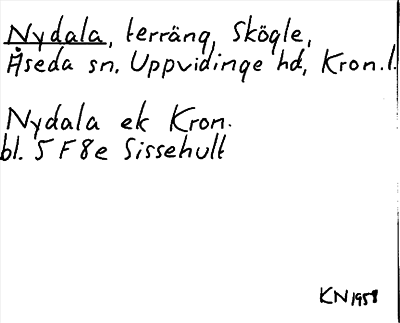 Nydala, terräng, Skögle,
Åseda sn. Uppvidinge hd, Kron.l.
Nydala ek Kron.
bl. 5 F 8 e Sissehult
KN 1958